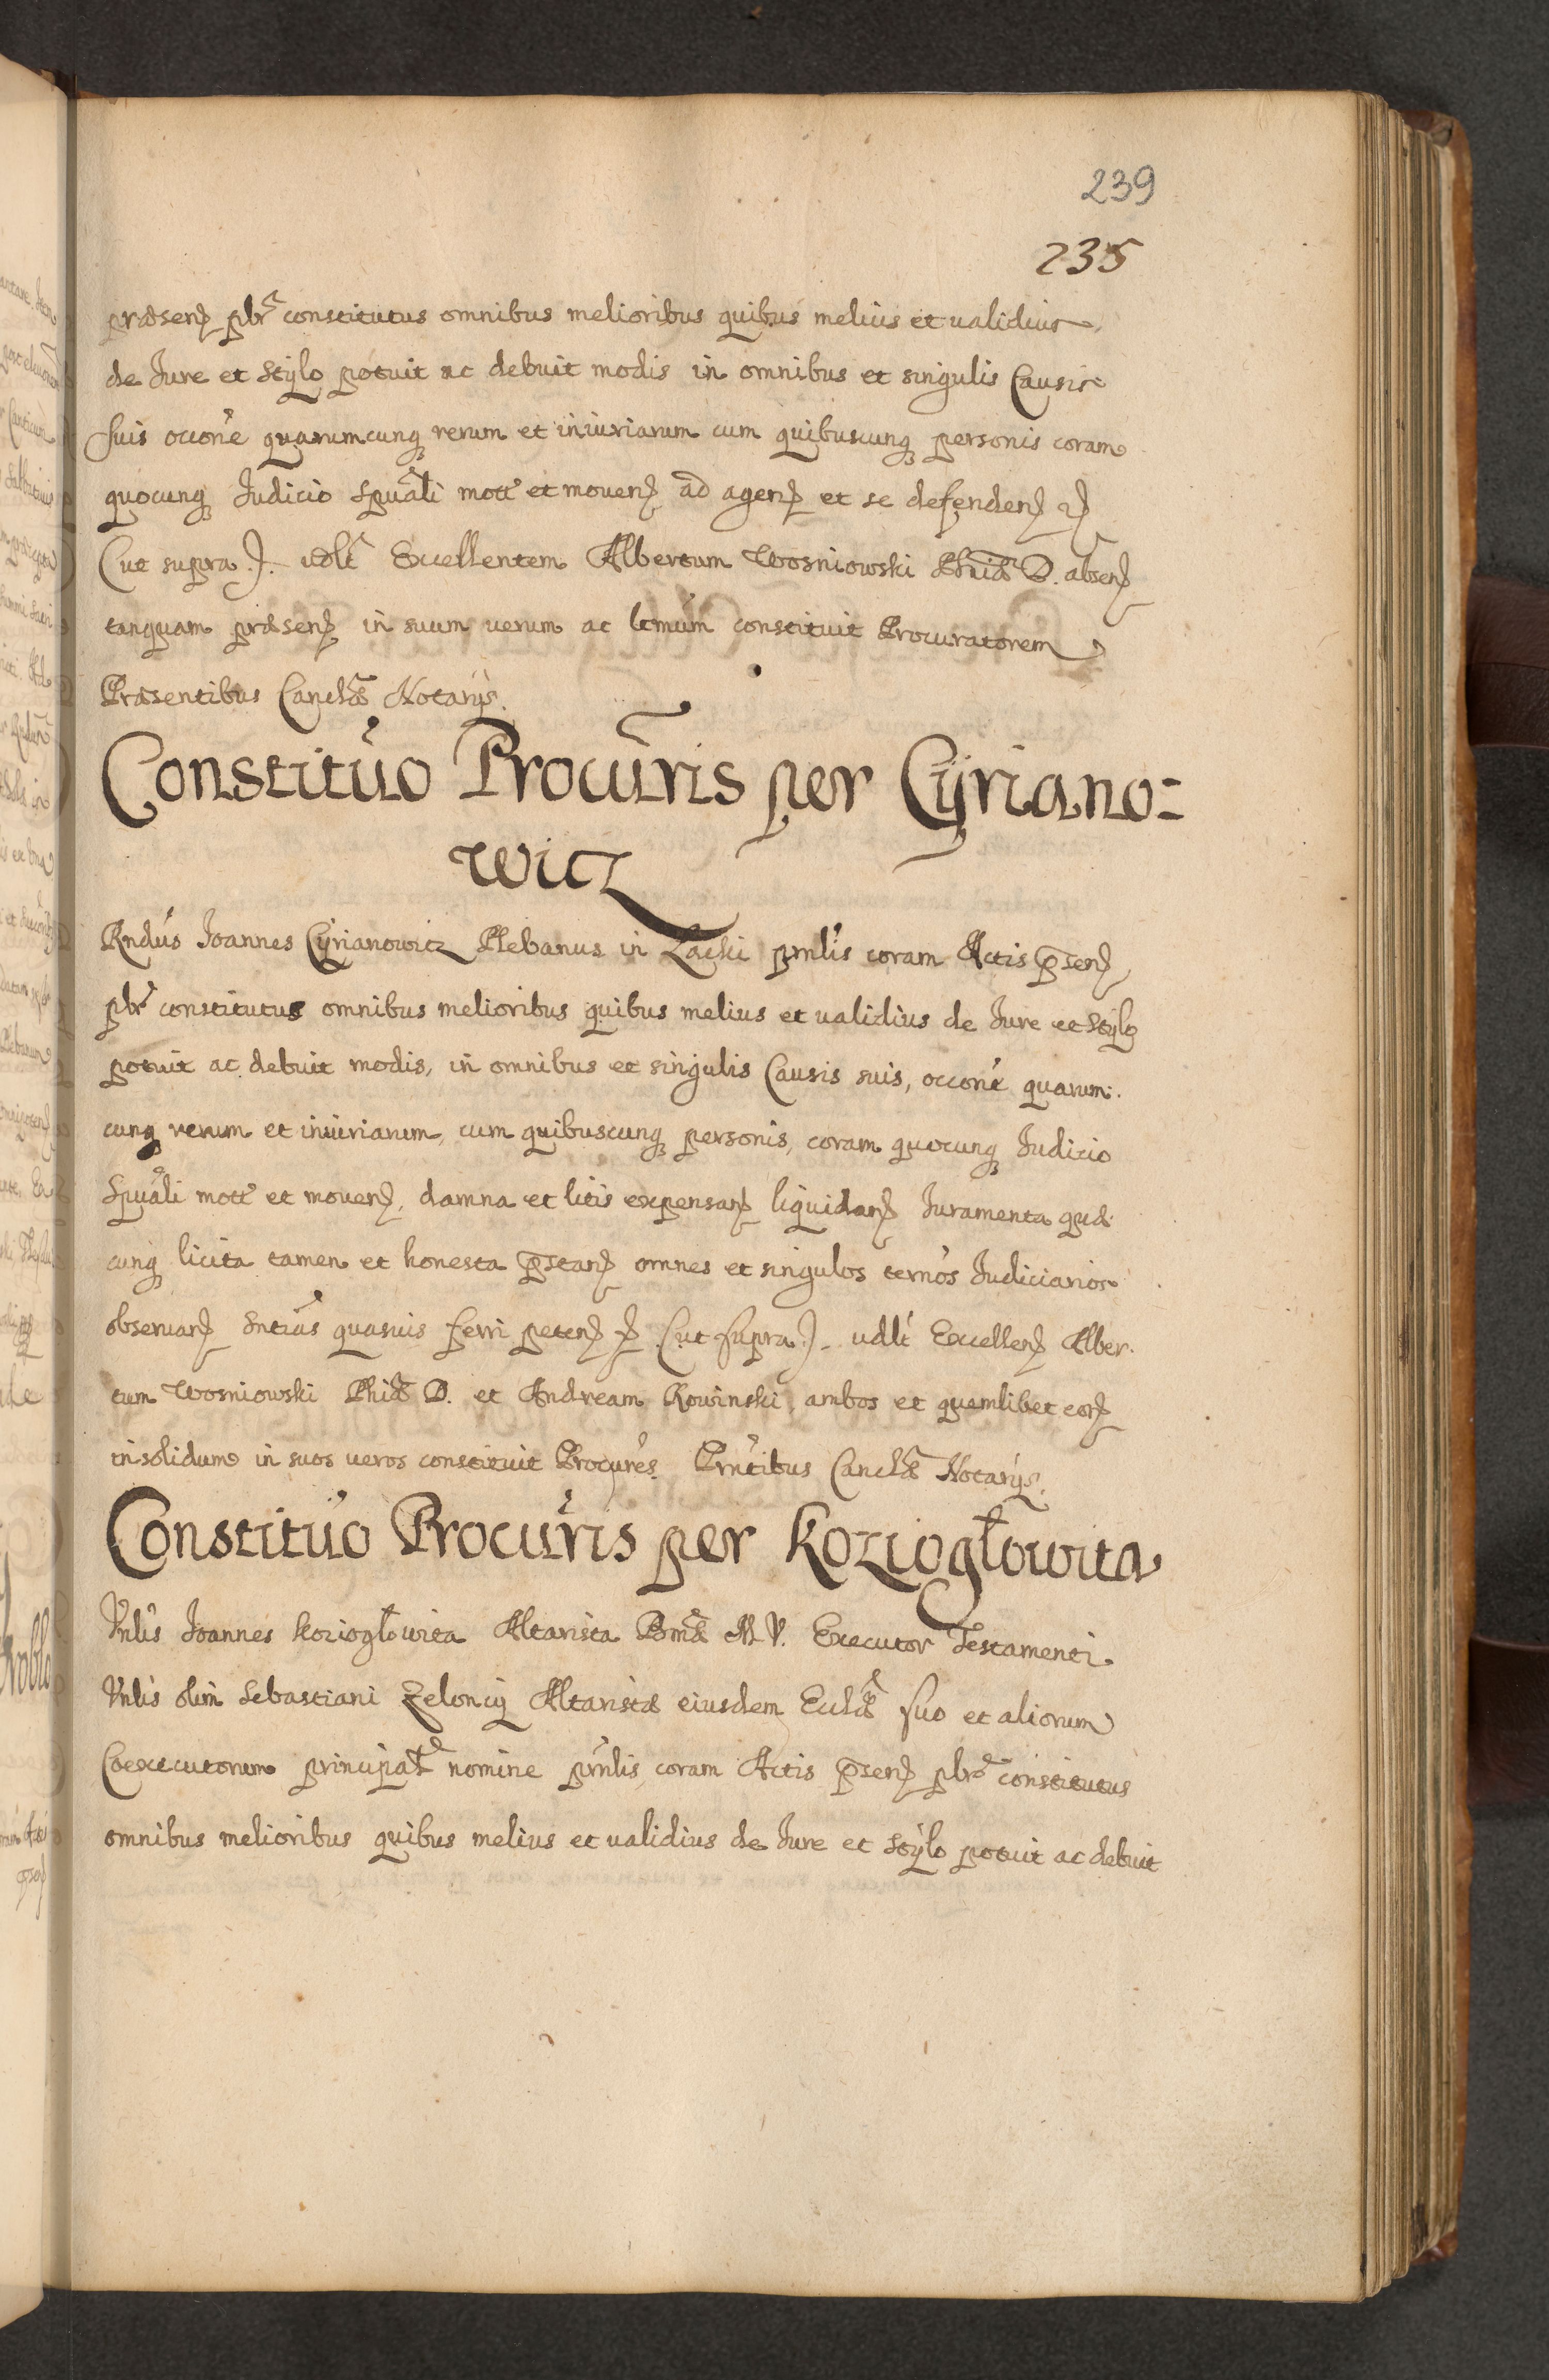 239
235
præsen plr constitutus omnibus melioribus quibus melius et validius
de Jure et Stylo potuit ac debuit modis in omnibus et singulis Causis
suis occone quarumcunq rerum et iniuriarum cum quibuscunq personis coram
quocunq Judicio Spuali mott et moven ad agen et se defenden
(ut supra.) vdlt Excellentem Albertum Wosniowski Phiæ D. absen
tanquam præsen in suum verum ac ltmum constituit Procuratorem
Præsentibus Canclæ Notarijs.
Constitúo Procuris per Cyriano=
wicz
Rndus Joannes Cyrianowicz Plebanus in Lacki prnlis coram Actis psen
plr constitutus omnibus melioribus quibus melius et validius de Jure et Stylo
potuit ac debuit modis, in omnibus et singulis Causis suis, occone quarum.
cunq rerum et iniuriarum, cum quibuscunq personis, coram quocunq Judicio
Spuali mott et moven, damna et litis expensan liquidan Juramenta quæ
cunq licita tamen et honesta pstan omnes et singulos ternos Judiciarios
observan Sntias quasvis ferri peten (ut supra.) vdlt Excellen Alber.
tum Wosniowski Phiæ D. et Andream Rowinski, ambos et quemlibet eor
insolidum in suos veros constituit Procures. Prntibus Canclæ Notarijs.
Constitúo Procuris per Koziogłowita
Vnlis Joannes Koziogłowita Altarista Bmæ M. V. Executor Testamenti
Vnlis olim Sebastiani Zeloncij Altaristæ eiusdem Eccliæ suo et aliorum
Coexecutorum principal nomine prnlis coram Actis psen plr constitutus
omnibus melioribus quibus melius et validius de Jure et Stylo potuit ac debuit